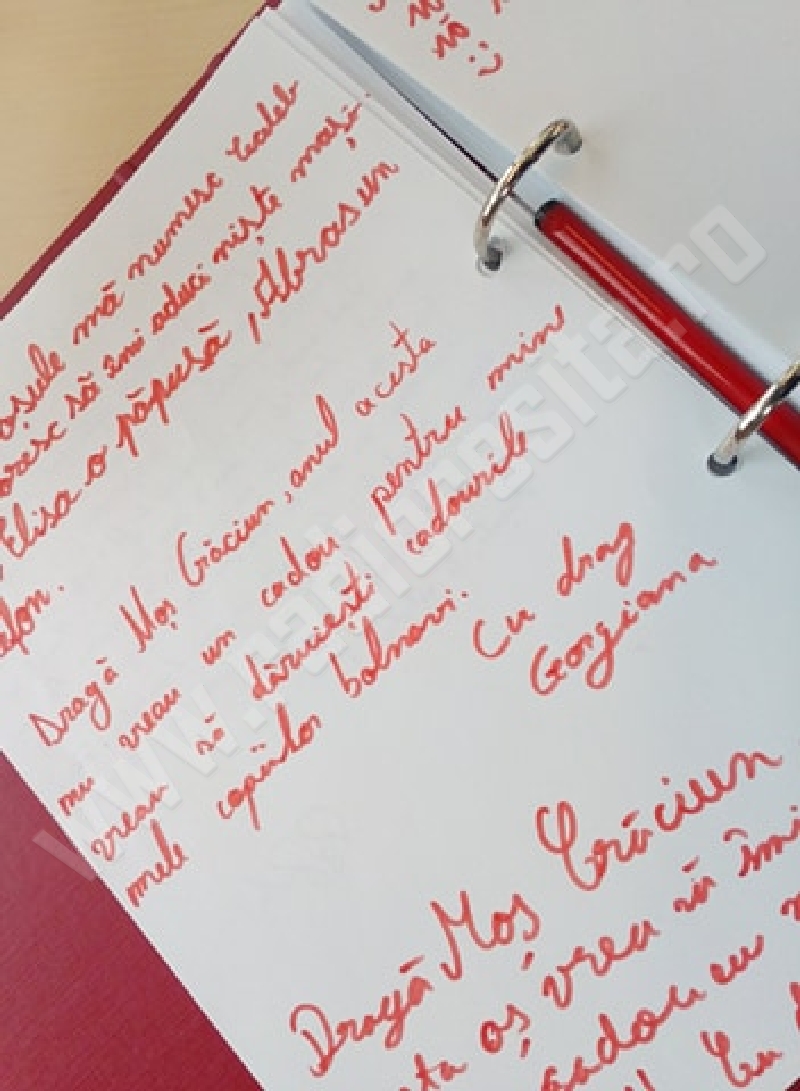 nă
:)
mă numesc Caleb
să îmi aduci niște mași..
Elisa o păpușă, Abrosun
Dragă Moș Crăciun, anul acesta
nu vreau un cadou pentru min
vreau să dăruiești cadourile
mele copiilor bolnavi.
Cu drag
Gorgiana
Dragă Moș Crăciun
aș vrea să îmi
cadou
www.radioresita.ro